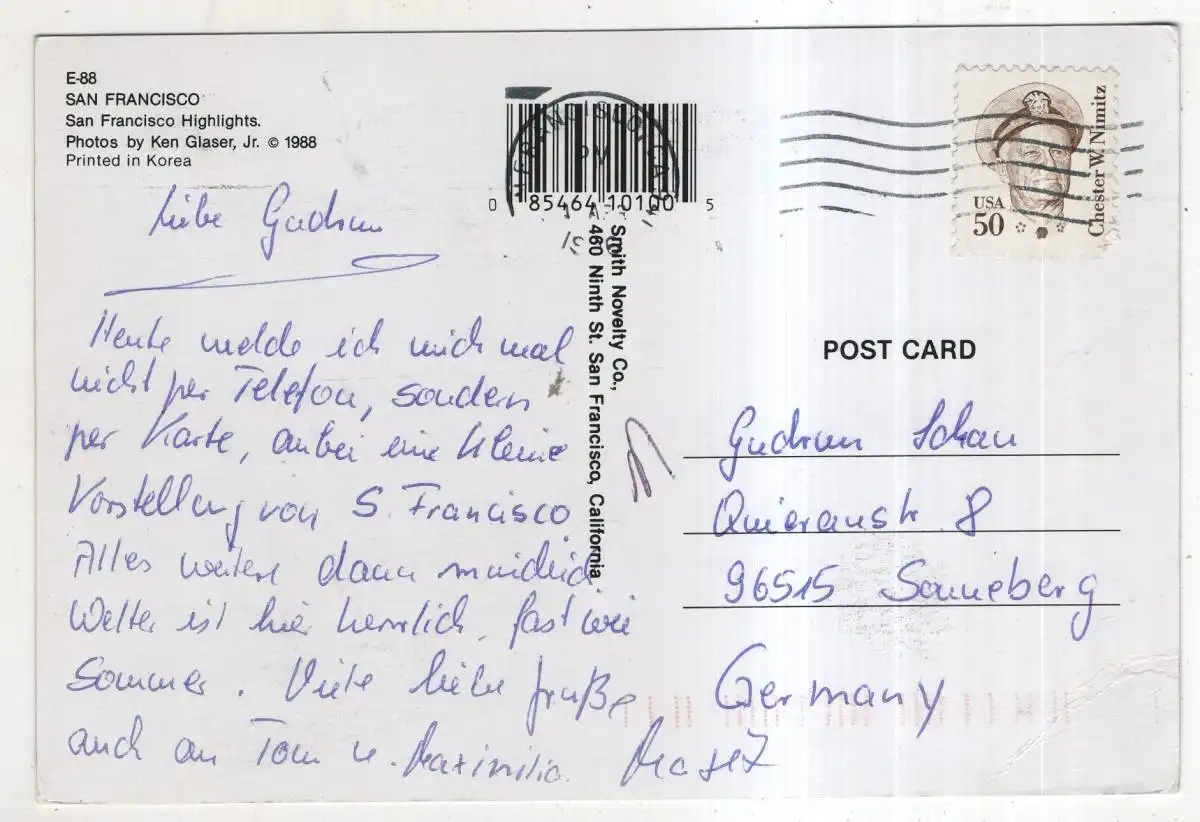 E-88
SAN FRANCISCO
San Francisco Highlights.
Photos by Ken Glaser, Jr. © 1988
Printed in Korea
Liebe Gudrun
Heute melde ich mich mal
nicht per Telefon, sondern
per Karte, anbei eine kleine
Vorstellung von S. Francisco
Alles weitere dann mündlich
Wetter ist hier herrlich, fast wie
Sommer. Viele liebe Grüße
auch an Tom u.
0 85464 10100 5
Smith Novelty Co.,
460 Ninth St. San Francisco, California
FRANCISCO, CA
PM
USA
50
Chester W. Nimitz
POST CARD
Gudrun Schau
8
96515 Sonneberg
Germany